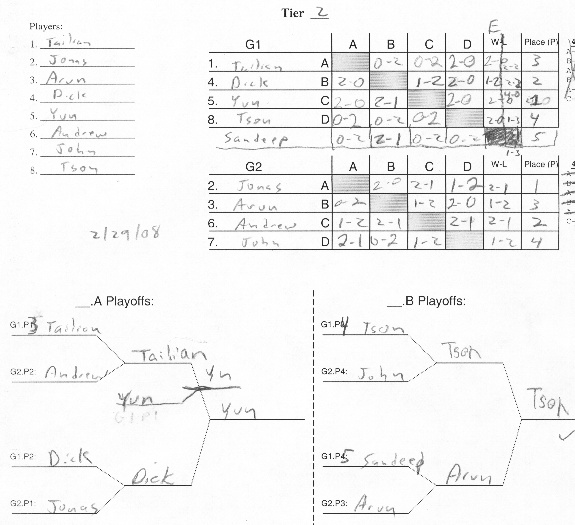 Tier 2
Players:
1. Tailian
2. Jonas
3. Arun
4. Dick
5. Yun
6. Andrew
7. John
8. Tson
2/29/08
E
G1 A B C D W-L Place (P)
1. Tailian A 0-2 0-2 2-0 3
4. Dick B 2-0 1-2 2-0 2
5. Yun C 2-0 2-1 2-0 1
8. Tson D 0-2 0-2 0-2 4
Sandeep 0-2 2-1 0-2 0-2 5
1-3
G2 A B C D W-L Place (P)
2. Jonas A 2-0 2-1 1-2 2-1 1
3. Arun B 0-2 1-2 2-0 1-2 3
6. Andrew C 1-2 2-1 2-1 2-1 2
7. John D 2-1 0-2 1-2 1-2 4
__.A Playoffs:
G1.P3 Tailian
Tailian
G2.P2: Andrew
Yn
Yun
G1.P1
Yun
G1.P2 Dick
Dick
G2.P1: Jonas
__.B Playoffs:
G1.P4 Tson
Tson
G2.P4: John
Tson
G1.P5 Sandeep
Arun
G2.P3: Arun